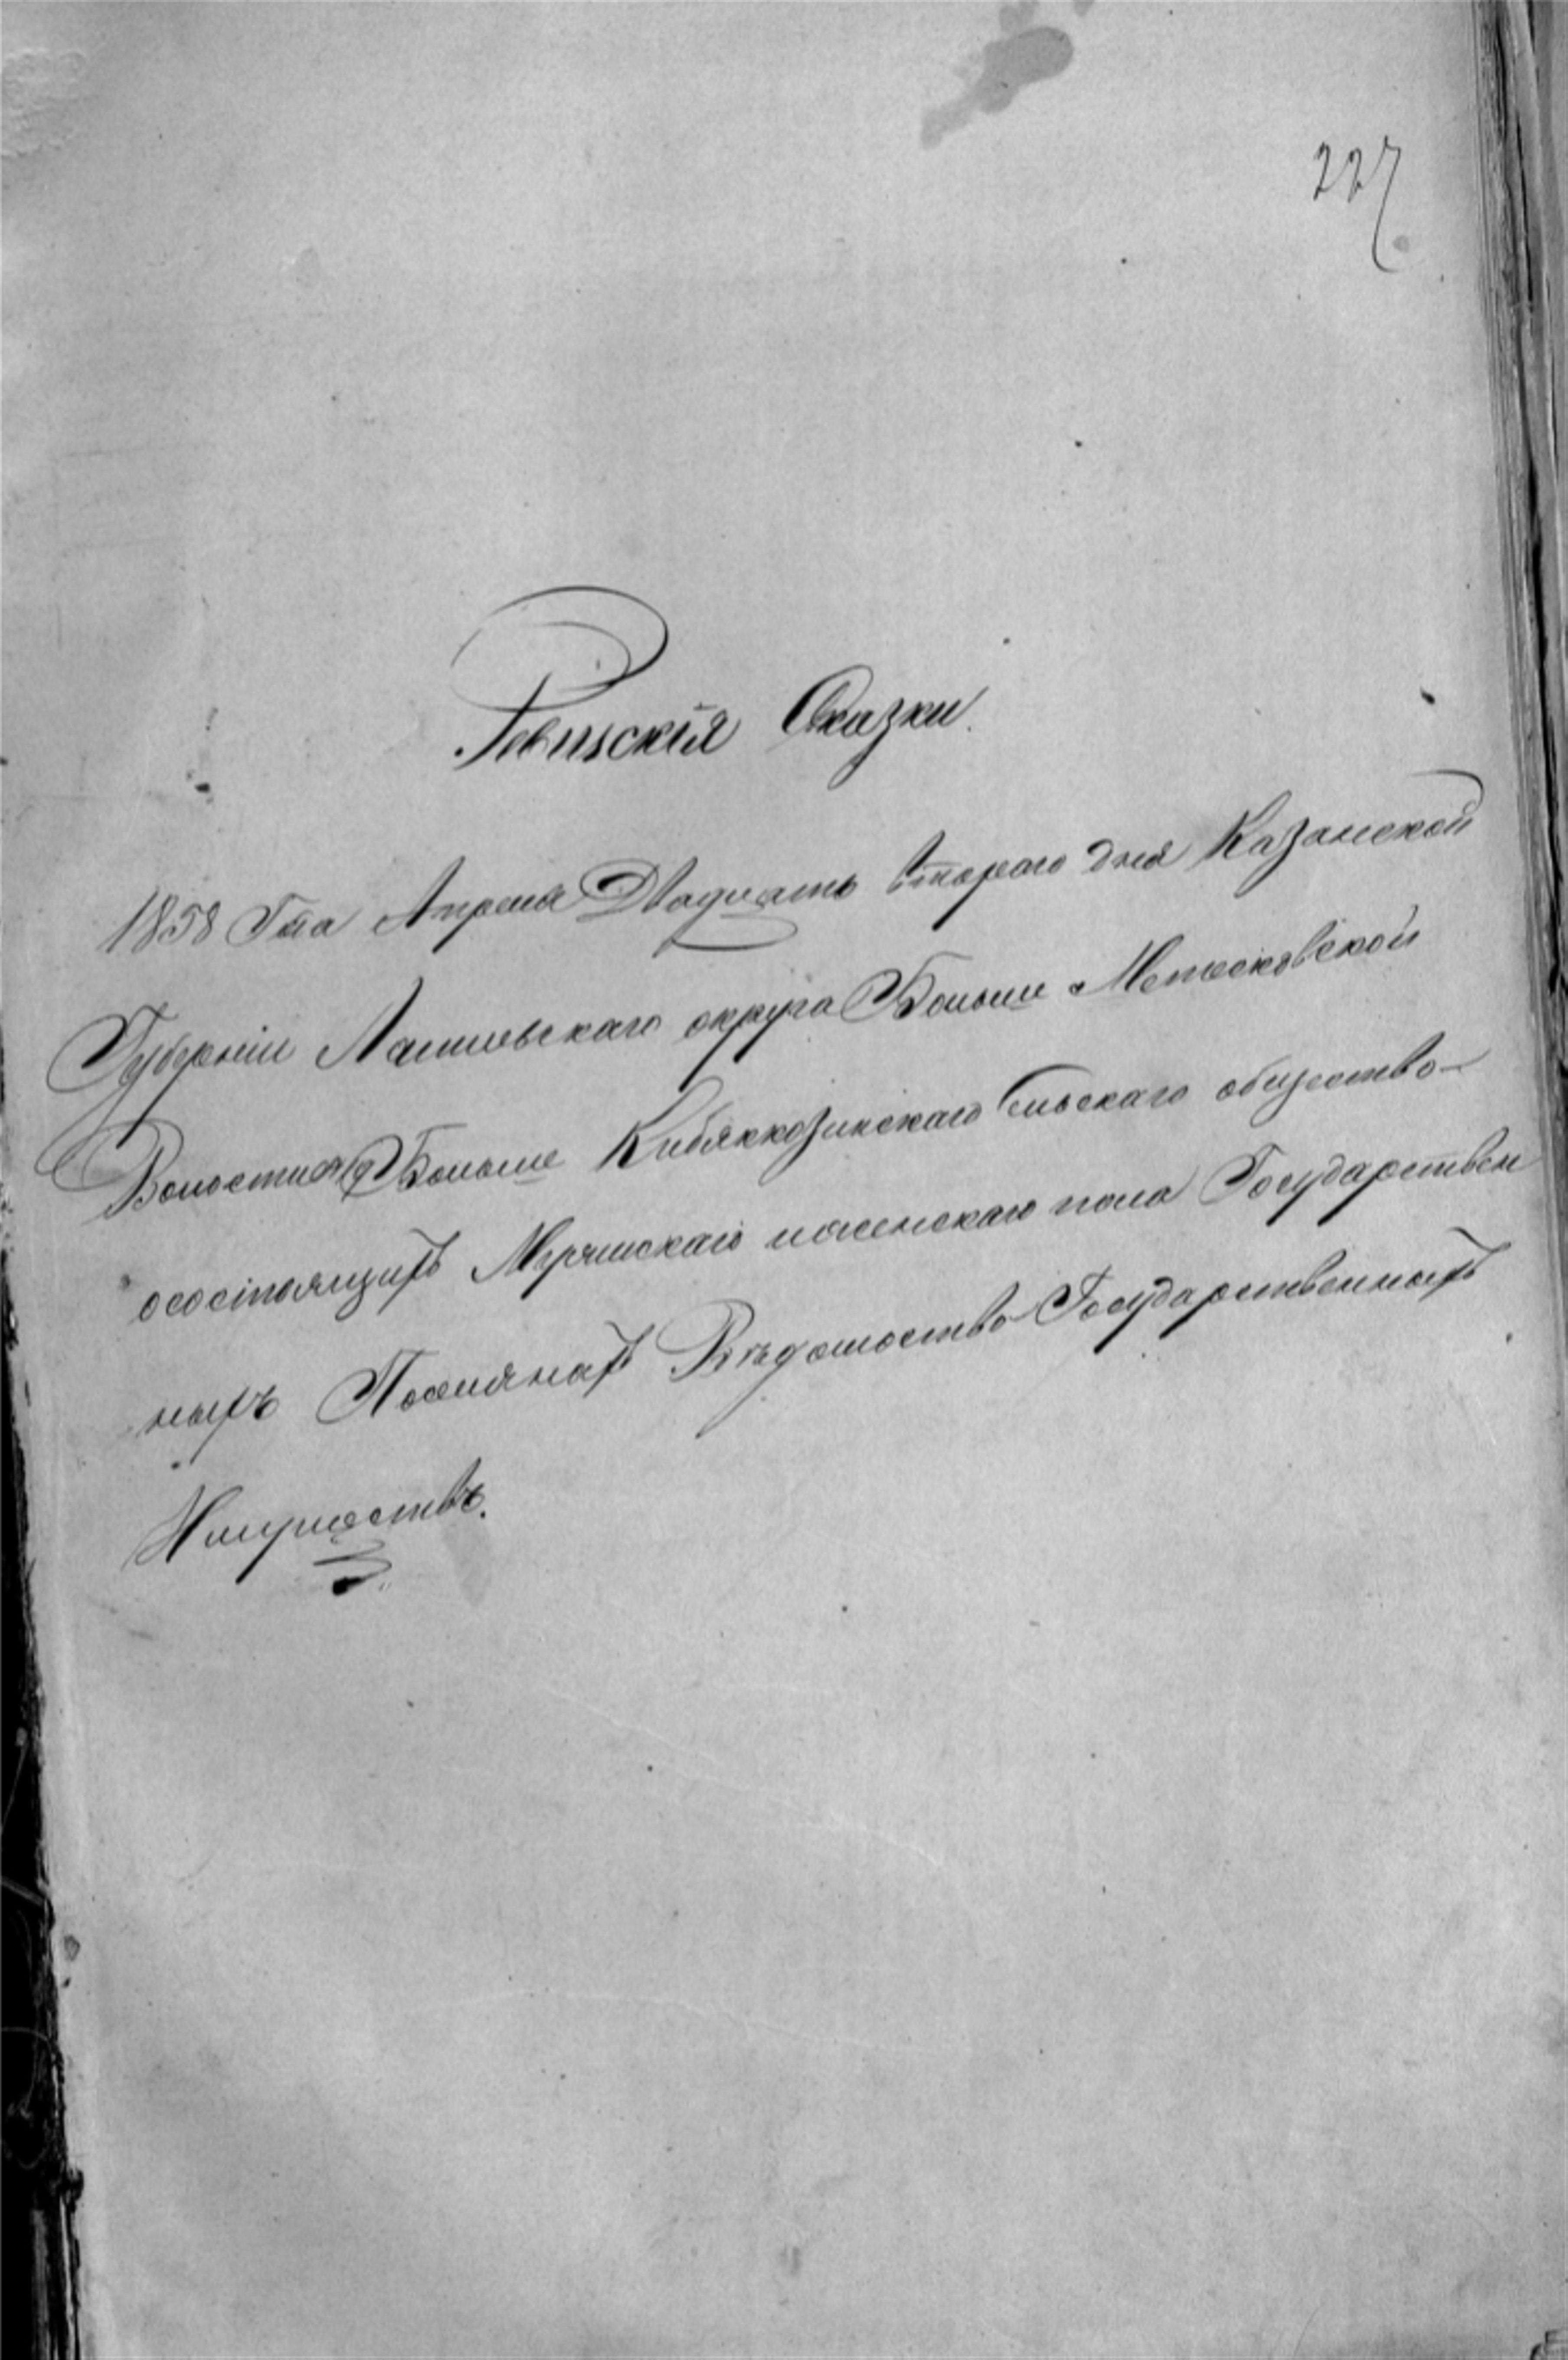 227
Ревизскія Сказки.
1858 Года Апреля Двадцать втораго дня Казанской
Губерніи Лаишевскаго округа Больше Метесковской
Волости Больше Кибяккозинскаго сельскаго общество
осостоящихъ Мужскаго и женскаго пола Государствен
ныхъ Поселянахъ Въдомоство Государственныхъ
Имуществъ.